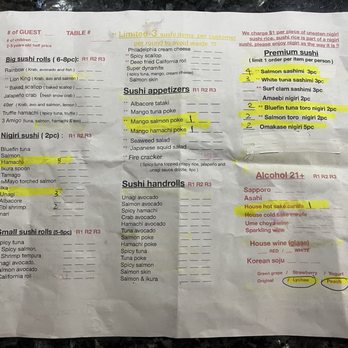 # of GUEST TABLE #
# of children
2-3 years old half price
Big sushi rolls ( 6-8pc): R1 R2 R3
Rainbow ( Krab, avocado and fish )
Lion King ( Krab and salmon
Baked scallop ( baked scallop )
Jalapeño crab (Deep snow crab)
49er ( Krab, avo and salmon, lemon)
Truffle hamachi ( spicy tuna, hamachi
3 Amigo (tuna, salmon, hamachi & avo)
Nigiri sushi ( 2pc) : R1 R2 R3
Bluefin tuna
Salmon
Hamachi 5
Ikura spoon
Tamago
Mayo torched salmon
Ika
Unagi 3
Albacore
Ebi shrimp 2
Inari
Small sushi rolls (5-8pc) R1 R2 R3
Spicy tuna
Spicy salmon
Shrimp tempura
Unagi avocado
California roll
Limited 3 sushi items per customer
per round to avoid waste !!
Philadelphia cream cheese
Spicy scallop
Deep fried California roll
Super dynamite
(spicy tuna, mango, cream cheese)
Salmon skin
Sushi appetizers R1 R2 R3
Albacore tataki
Mango tuna poke
Mango salmon poke 1
Mango hamachi poke 1
Seaweed salad
Japanese squid salad
Fire cracker
(Spicy tuna topped crispy rice, jalapeño and unagi sauce drizzle, 4pc)
Sushi handrolls R1 R2 R3
Unagi avocado
Salmon avocado
Spicy hamachi
Crab avocado
Tuna avocado
Salmon poke
Tuna poke
Hamachi poke
Spicy tuna
Tuna poke
Spicy salmon
Salmon skin
Salmon & ikura
We charge $1 per piece of uneaten nigiri
sushi rice, sushi rice is part of nigiri
sushi, please enjoy nigiri as the way it is ?
Premium sushi
( limit 1 order per item per person )
4 Salmon sashimi 3pc
3 White tuna sashimi 3pc
Surf clam sashimi 3pc
Amaebi nigiri 2pc
2 Bluefin tuna toro nigiri 2pc
2 Salmon toro nigiri 2pc
2 Omakase nigiri 5pc
Alcohol 21+ R1 R2 R3
Sapporo
Asahi
House hot sake carafe 1
House cold sake carafe
Ume choya wine
Sparkling wine
House wine (glass)
RED / WHITE
Korean soju
Green grape / Strawberry / Yogurt
Original / Lychee / Peach